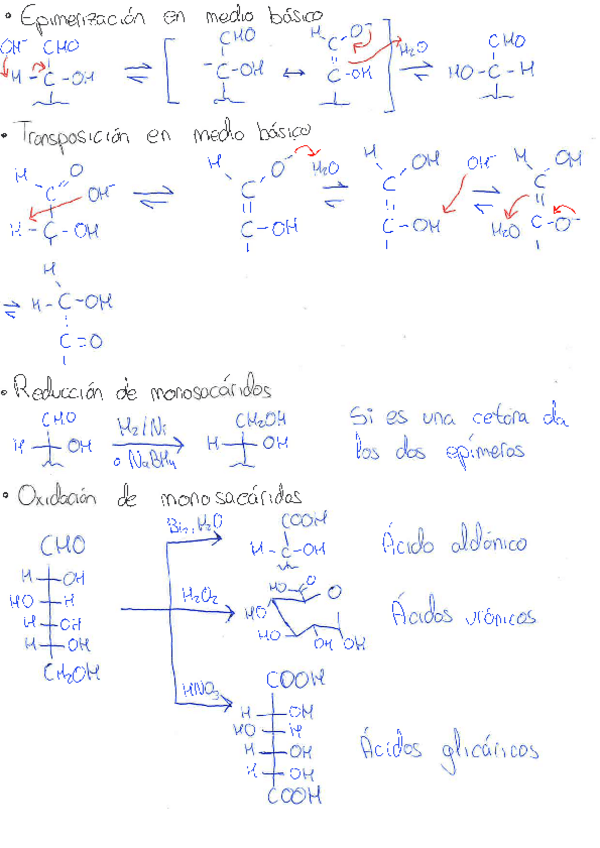 • Epimerización en medio básico
OH⁻ CHO CHO H C O⁻ H₂O CHO
H-C-OH ⇌ [ -C-OH ↔ C-OH ] ⇌ HO-C-H
• Transposición en medio básico
H C=O OH⁻ H C O⁻ H₂O H C OH OH⁻ H C OH
H-C-OH ⇌ C-OH ⇌ C-OH ⇌ H₂O C-O⁻
H
⇌ H-C-OH
C=O
• Reducción de monosacáridos
CHO H₂/Ni CH₂OH Si es una cetona da
H OH o NaBH₄ H OH los dos epímeros
• Oxidación de monosacáridos
CHO Br₂, H₂O COOH
H-C-OH Ácido aldónico
H OH
HO H H₂O₂ HO C O O Ácidos urónicos
H OH HO
H OH HO OH OH
CH₂OH
HNO₃ COOH
H OH
HO H
H OH Ácidos glicáricos
H OH
COOH